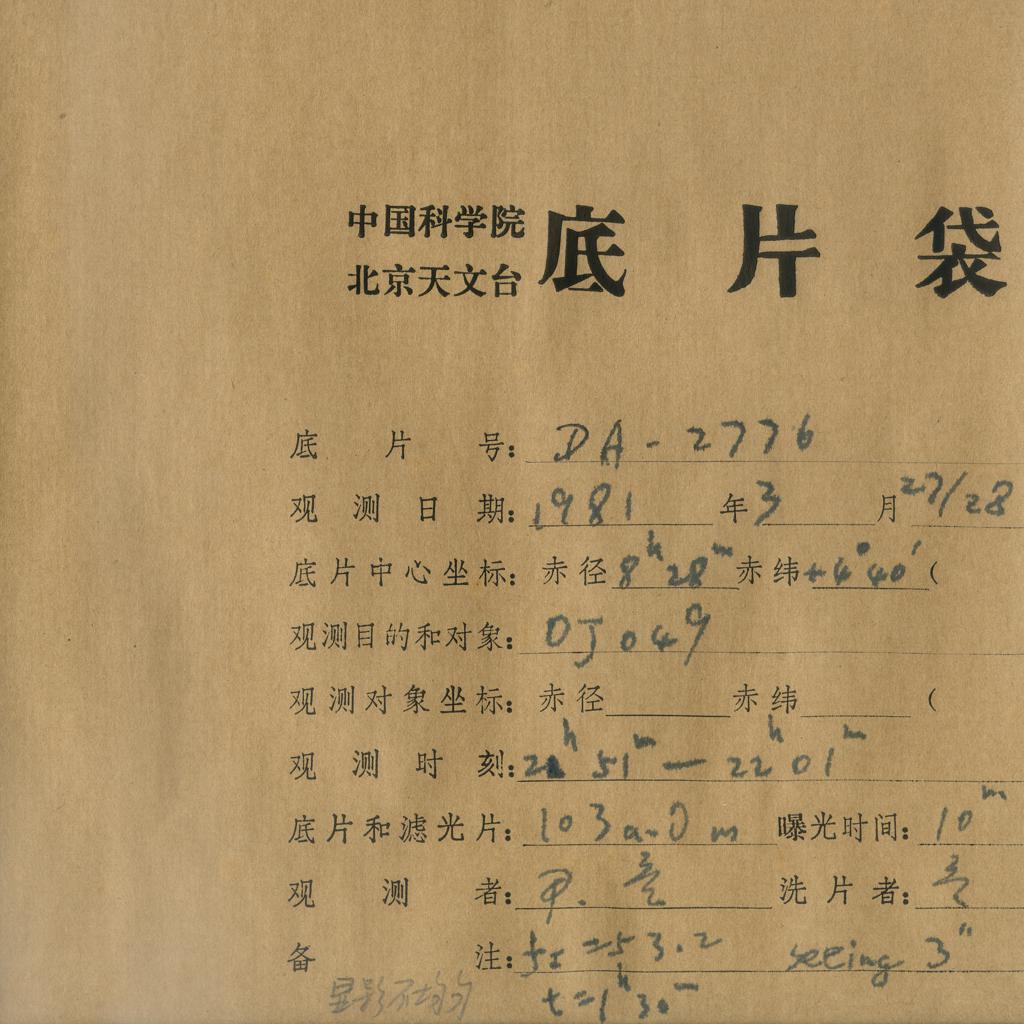 中国科学院
北京天文台
底片袋
底片号: DA-2776
观测日期: 1981年3月27/28
底片中心坐标: 赤径 8h28m 赤纬 +4°40′ (
观测目的和对象: OJ 049
观测对象坐标: 赤径 赤纬 (
观测时刻: 21h51m — 22h01m
底片和滤光片: 103a-D m 曝光时间: 10m
观测者: 洗片者:
备注: =53.2 seeing 3″
显影不均匀 t=1h30m